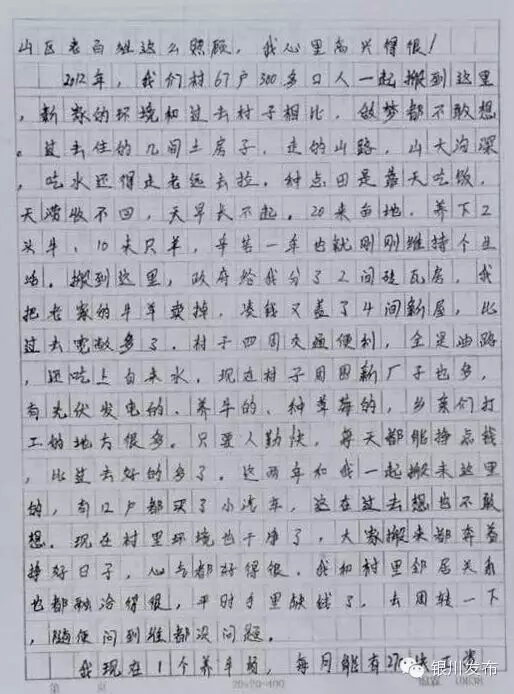 山区老百姓这么照顾，我心里高兴得很！
2012年，我们村67户300多口人一起搬到这里
，新家的环境和过去村子相比，做梦都不敢想
。过去住的几间土房子，走的山路，山大沟深
，吃水还得走老远去拉。种点田是靠天吃饭，
天涝收不回，天旱长不起。20来亩地，养下2
头牛、10来只羊，辛苦一年也就刚刚维持个生
活。搬到这里，政府给我分了2间砖瓦房，我
把老家的牛羊卖掉，凑钱又盖了4间新屋，比
过去宽敞多了。村子四周交通便利，全是油路
，还吃上自来水。现在村子周围新厂子也多，
有光伏发电的、养牛的、种草莓的，乡亲们打
工的地方很多。只要人勤快，每天都能挣点钱
，比过去好的多了。这两年和我一起搬来这里
的，有12户都买了小汽车，这在过去想也不敢
想。现在村里环境也干净了，大家搬来都奔着
挣好日子，心态都好得很。我和村里邻居关系
也都融洽得很，平时手里缺钱了，去周转一下
，随便问到谁都没问题。
我现在1个养牛场，每月能有27
第 页
20×20=400
银川发布